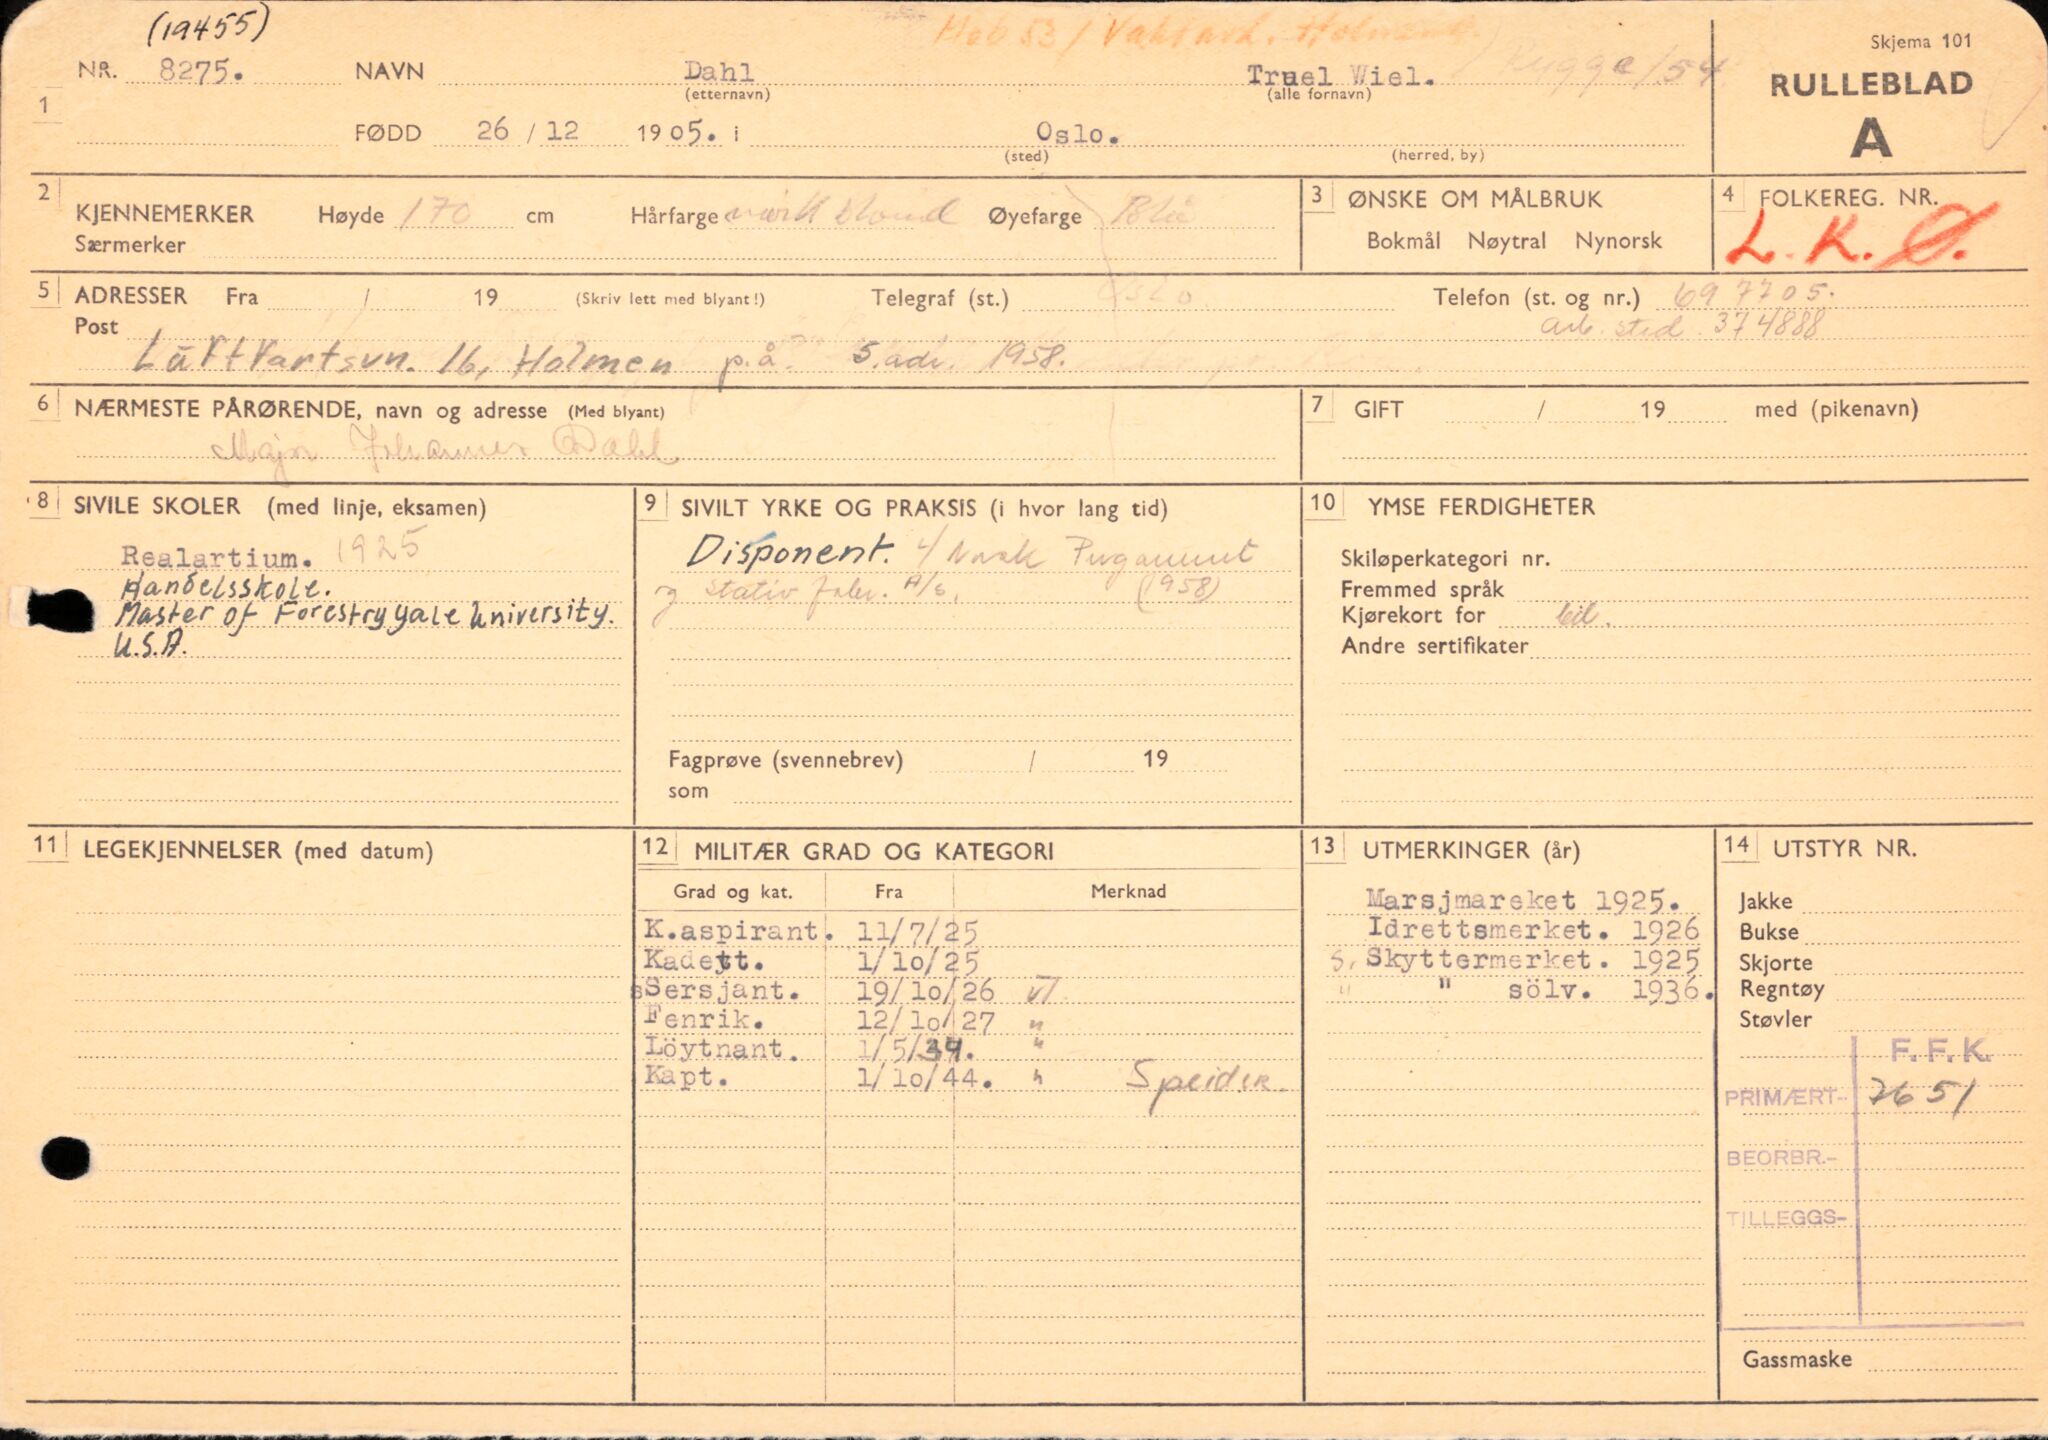 (19455)
Hob 53 / Vaktavd. Holmen
Rygge/54
Skjema 101
NR. 8275. NAVN Dahl Truel Wiel.
(etternavn) (alle fornavn)
RULLEBLAD
A
1
FØDD 26 / 12 1905. i Oslo.
(sted) (herred, by)
2 KJENNEMERKER Høyde 170 cm Hårfarge mørk blond Øyefarge Blå
Særmerker
3 ØNSKE OM MÅLBRUK
Bokmål Nøytral Nynorsk
4 FOLKEREG. NR.
L. K. Ø.
5 ADRESSER Fra / 19 (Skriv lett med blyant!) Telegraf (st.) Oslo Telefon (st. og nr.) 697705.
Post arb. sted. 374888
Luftfartsvn. 16, Holmen p.å. 5. adv. 1958.
6 NÆRMESTE PÅRØRENDE, navn og adresse (Med blyant)
Major Johannes Dahl
7 GIFT / 19 med (pikenavn)
8 SIVILE SKOLER (med linje, eksamen)
Realartium. 1925
Handelsskole.
Master of Forestry Yale University.
U.S.A.
9 SIVILT YRKE OG PRAKSIS (i hvor lang tid)
Disponent. Norsk
og Stativ A/S. (1958)
Fagprøve (svennebrev) / 19
som
10 YMSE FERDIGHETER
Skiløperkategori nr.
Fremmed språk
Kjørekort for bil.
Andre sertifikater
11 LEGEKJENNELSER (med datum)
12 MILITÆR GRAD OG KATEGORI
Grad og kat. Fra Merknad
K.aspirant. 11/7/25
Kadett. 1/10/25
Sersjant. 19/10/26 VI
Fenrik. 12/10/27 "
Löytnant. 1/5/34. "
Kapt. 1/10/44. " Speider.
13 UTMERKINGER (år)
Marsjmareket 1925.
Idrettsmerket. 1926
S. Skyttermerket. 1925
" " sölv. 1936.
14 UTSTYR NR.
Jakke
Bukse
Skjorte
Regntøy
Støvler
F. F. K.
PRIMÆRT- 7651
BEORBR.-
TILLEGGS-
Gassmaske